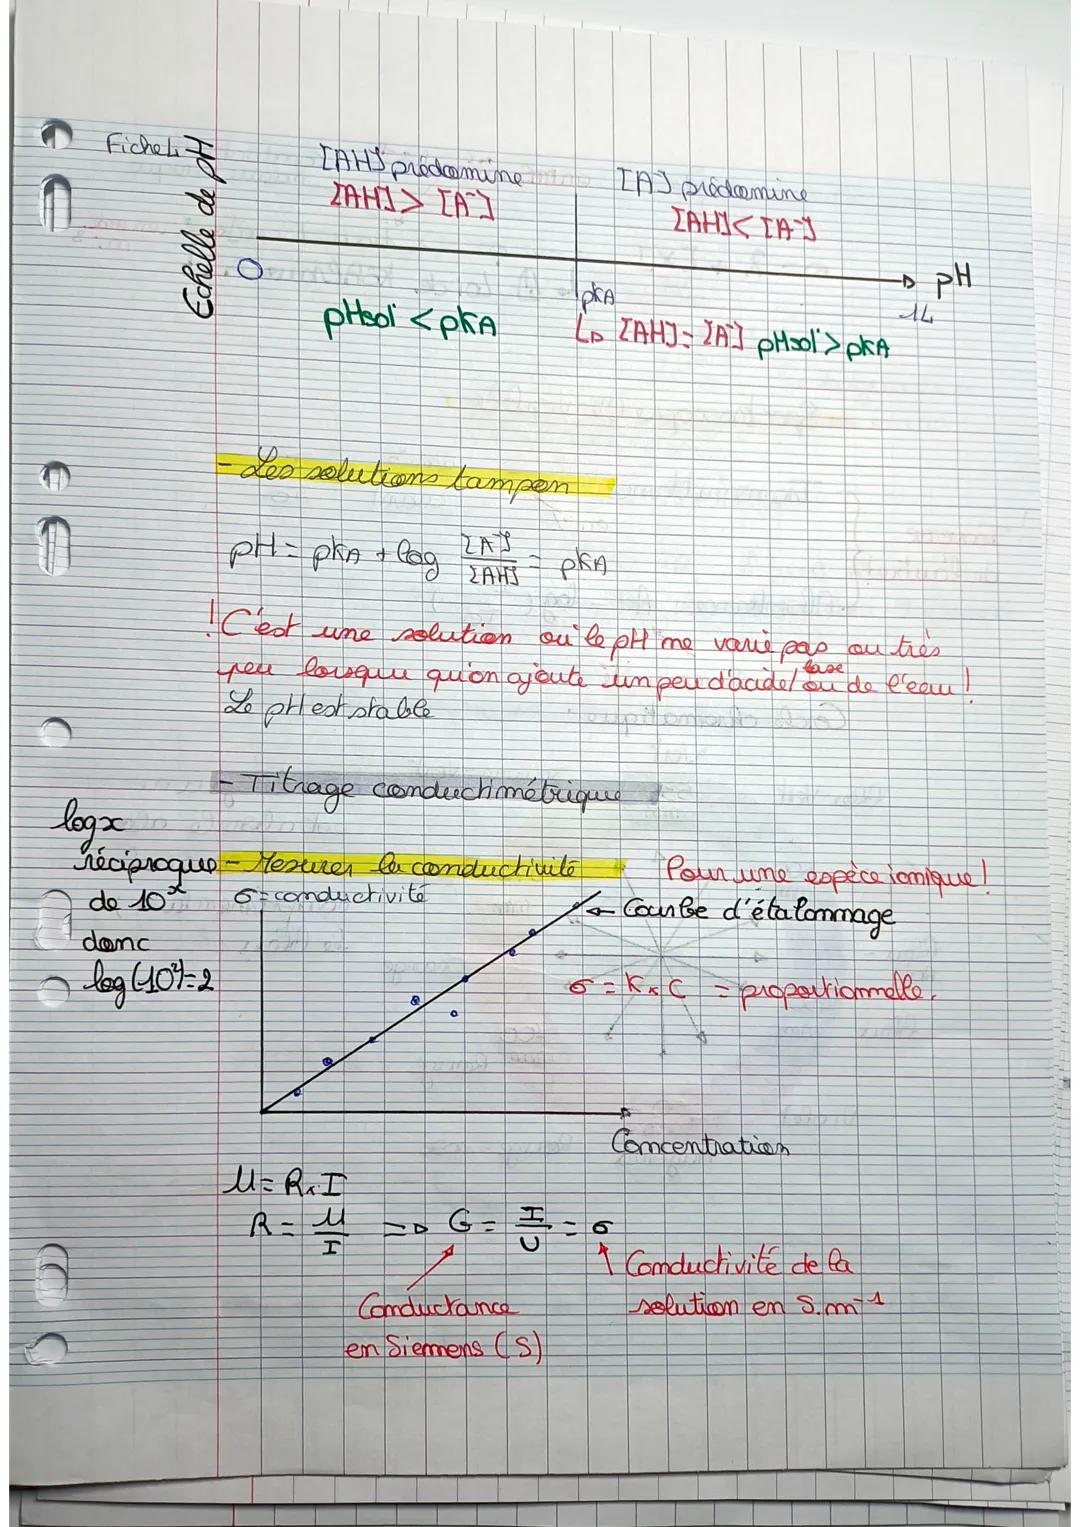 Fiche 4
Echelle de pH
[AH] prédomine
[AH] > [A⁻]
[A] prédomine
[AH] < [A⁻]
O
pH
pkA
14
pHsol° < pkA
↳ [AH] = [A⁻] pHsol° > pkA
- Les solutions tampon
pH = pkA + log [A⁻]/[AH] = pkA
! C'est une solution où le pH ne varie pas ou très
peu lorsque qu'on ajoute un peu d'acide/base ou de l'eau !
Le pH est stable
- Titrage conductimétrique
logx
réciproque
de 10ˣ
donc
log(10²)=2
- Mesurer la conductivité
Pour une espèce ionique !
σ = conductivité
← Courbe d'étalonnage
σ = K x C = proportionnelle.
Concentration
U = R x I
R = U/I => G = I/U = σ
Conductance
en Siemens (S)
Conductivité de la
solution en S.m⁻¹